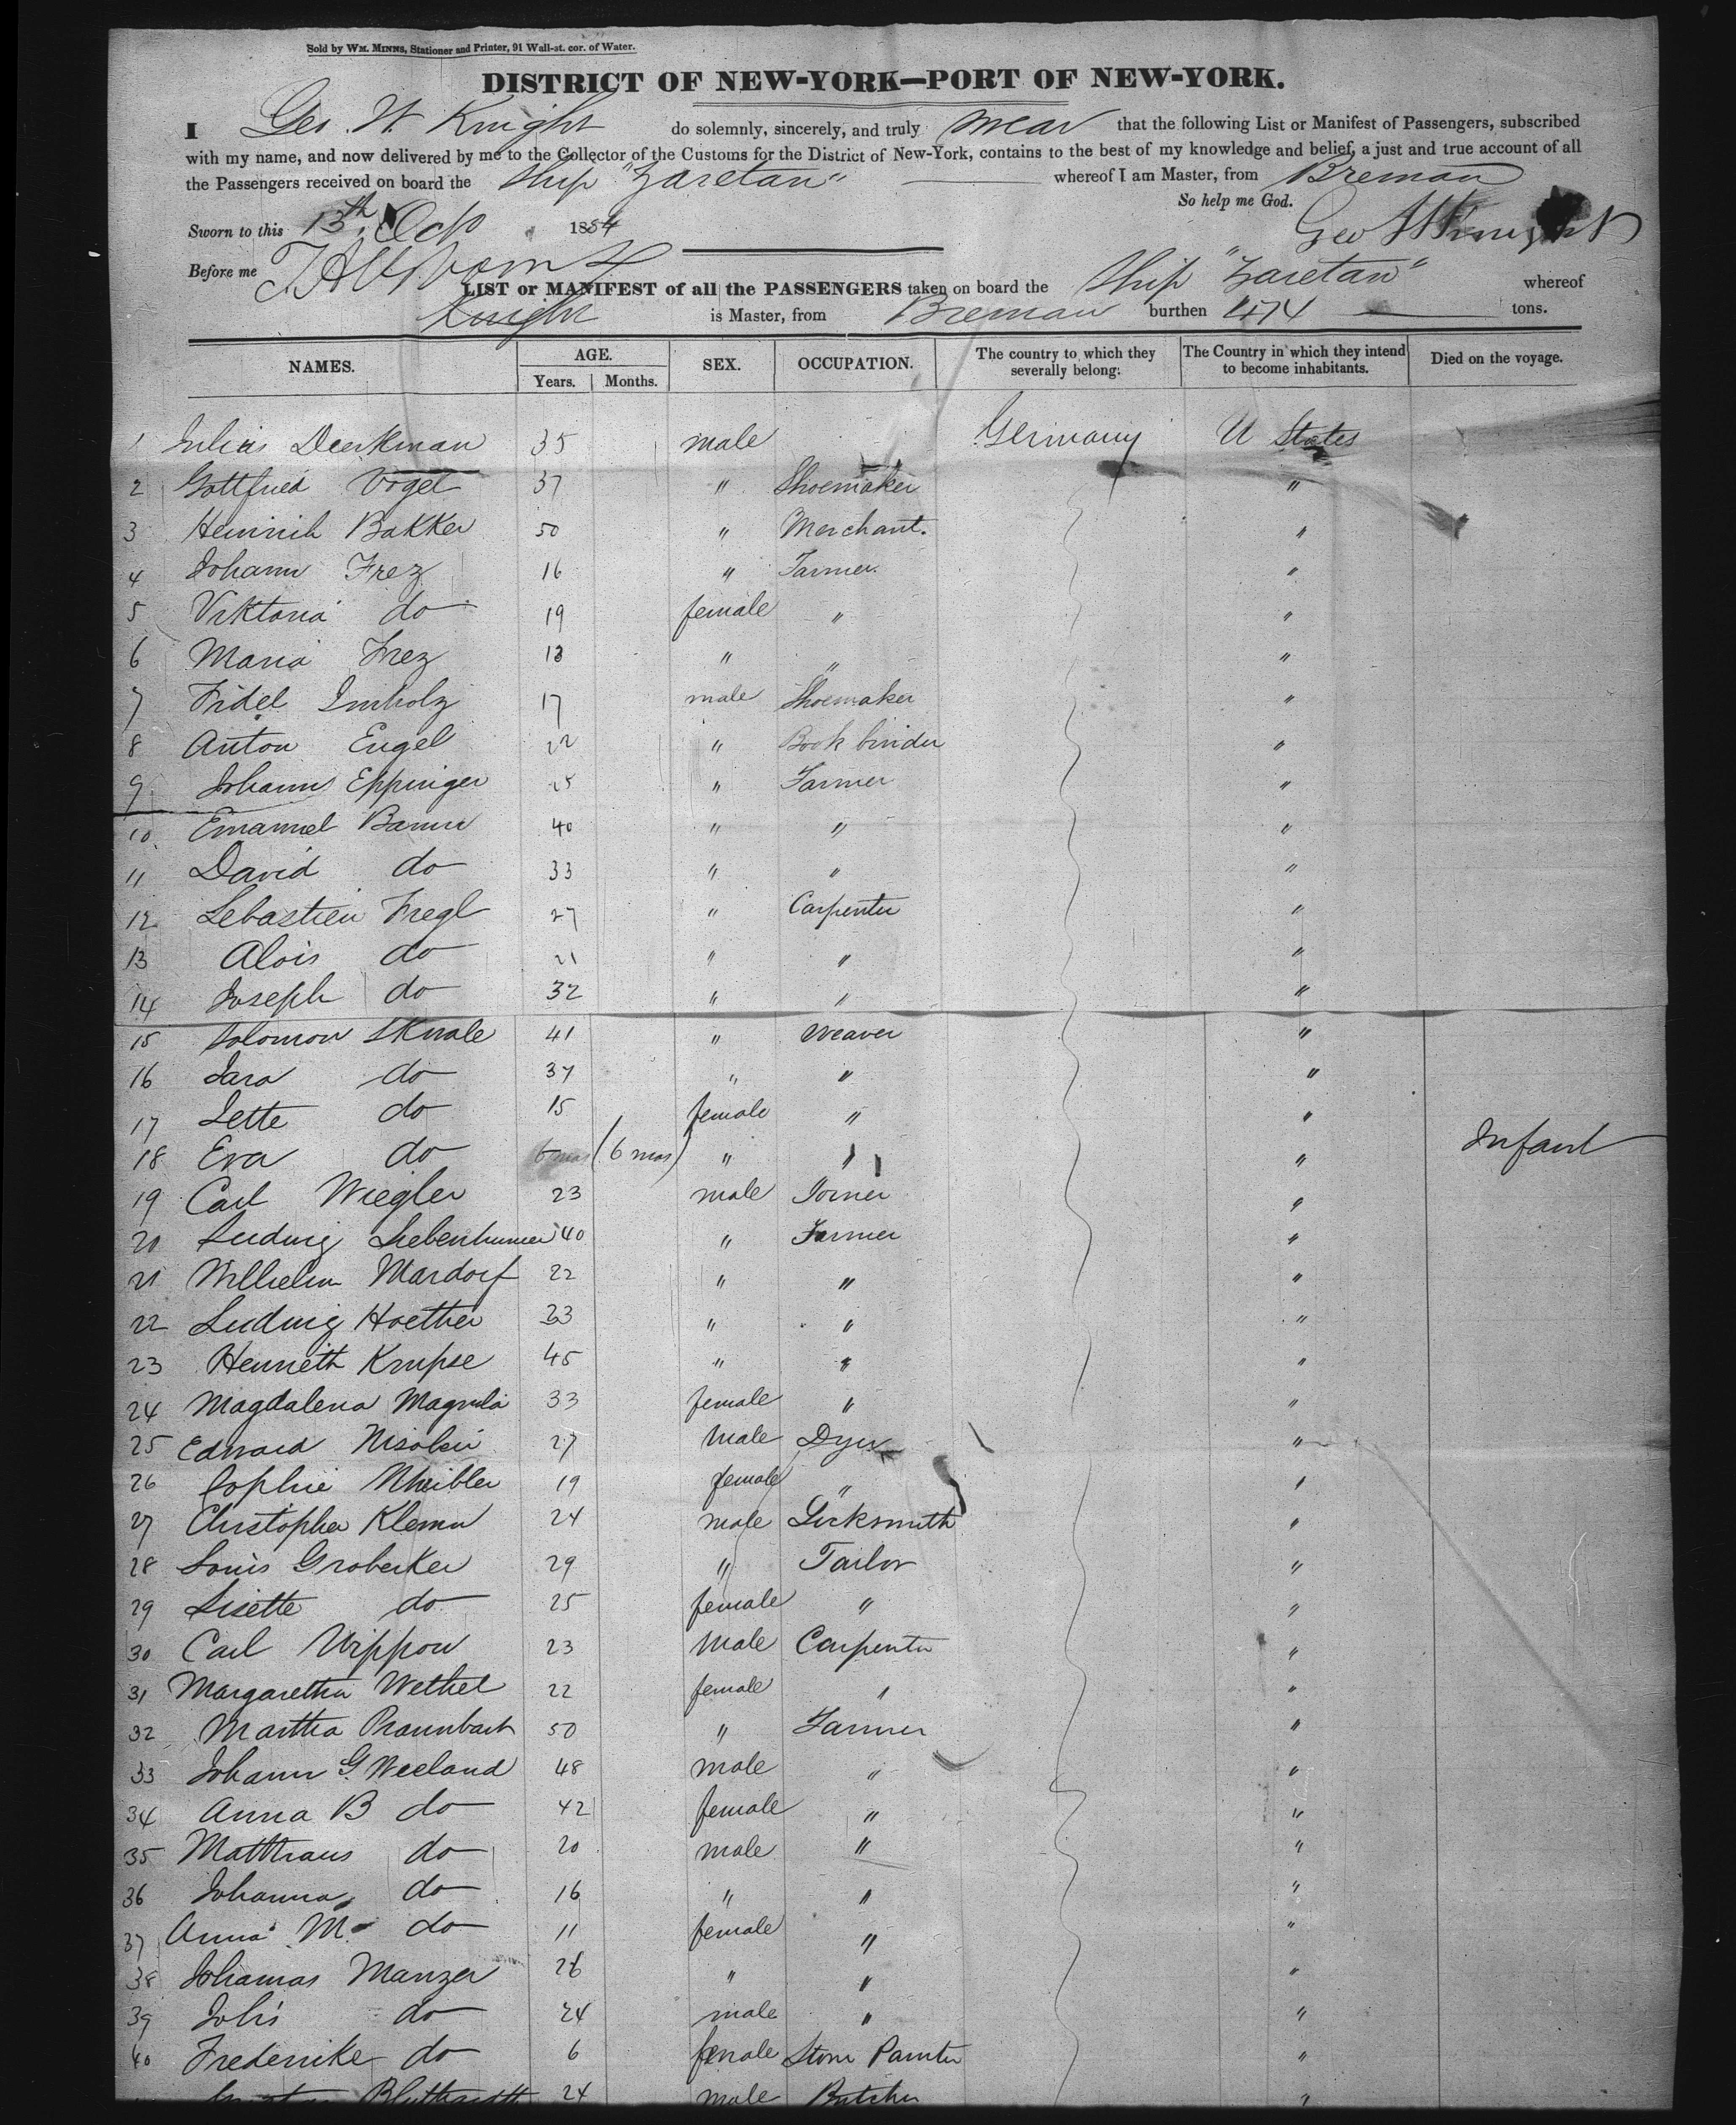 Sold by WM. MINNS, Stationer and Printer, 91 Wall-st. cor. of Water.
DISTRICT OF NEW-YORK—PORT OF NEW-YORK.
I Geo. W. Knight do solemnly, sincerely, and truly swear that the following List or Manifest of Passengers, subscribed
with my name, and now delivered by me to the Collector of the Customs for the District of New-York, contains to the best of my knowledge and belief, a just and true account of all
the Passengers received on board the Ship "Zaretan" whereof I am Master, from Breman
So help me God.
Sworn to this 13th Oct 1854 Geo W Knight
Before me
LIST or MANIFEST of all the PASSENGERS taken on board the Ship "Zaretan" whereof
Knight is Master, from Breman burthen 474 tons.
NAMES. AGE. Years. Months. SEX. OCCUPATION. The country to which they severally belong: The Country in which they intend to become inhabitants. Died on the voyage.
1 Julius 35 male Germany U States
2 Gottfried Vogel 37 " Shoemaker "
3 Heinrih Bakker 50 " Merchant. "
4 Johann Frez 16 " Farmer. "
5 Viktoria do 19 female " "
6 Maria Frez 13 " " "
7 Fidel Imholz 17 male Shoemaker "
8 Anton Engel 22 " Book binder "
9 Johann Eppinger 25 " Farmer "
10 Emanuel 40 " " "
11 David do 33 " " "
12 Sebastien Fregl 27 " Carpenter "
13 Alois do 21 " " "
14 Joseph do 32 " " "
15 Solomon 41 " Weaver "
16 Sara do 37 " " "
17 Jette do 15 female " "
18 Eva do 6 mos (6 mos) " " " Infant
19 Carl Wiegler 23 male Joiner "
20 Ludwig 40 " Farmer "
21 Wilhelm Mardorf 22 " " "
22 Ludwig Hoether 23 " " "
23 Krupse 45 " " "
24 Magdalena 33 female " "
25 Edward 27 male Dyer "
26 Sophie 19 female " "
27 Christopher Klemm 24 male Locksmith "
28 Louis Grobecker 29 " Tailor "
29 Lisette do 25 female " "
30 Carl Wippow 23 male Carpenter "
31 Margaretha Wethel 22 female " "
32 Martha 50 " Farmer "
33 Johann G. Weeland 48 male " "
34 Anna B do 42 female " "
35 Matthaus do 20 male " "
36 Johanna do 16 " " "
37 Anna M. do 11 female " "
38 Johannas Manzer 26 " " "
39 do 24 male " "
40 Frederike do 6 female Stone Painter "
24 male Butcher "